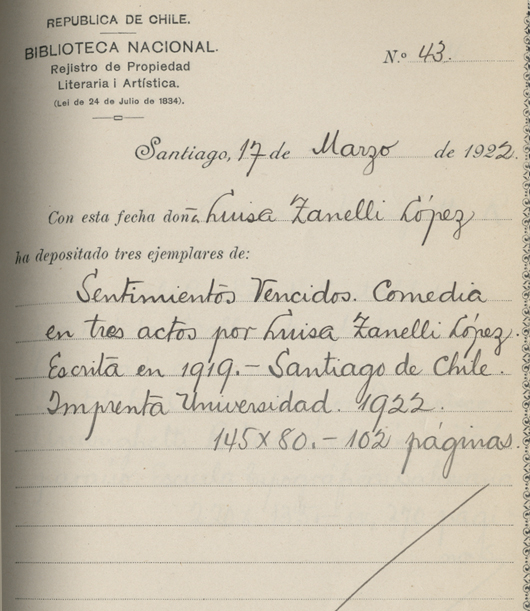 REPUBLICA DE CHILE.
BIBLIOTECA NACIONAL.
Rejistro de Propiedad
Literaria i Artística.
(Lei de 24 de Julio de 1834).
N.º 43.
Santiago, 17 de Marzo de 1922.
Con esta fecha doña Luisa Zanelli López
ha depositado tres ejemplares de:
Sentimientos Vencidos. Comedia
en tres actos por Luisa Zanelli López.
Escrita en 1919.- Santiago de Chile.
Imprenta Universidad. 1922.
145 x 80.- 102 páginas.